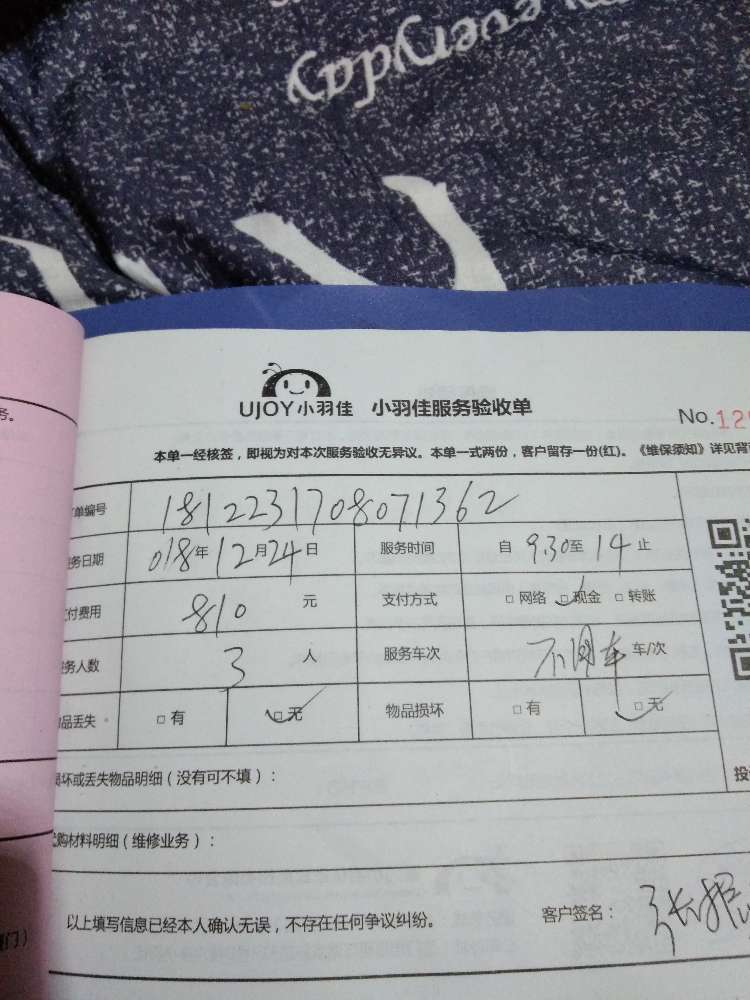 everyday
务。
UJOY小羽佳 小羽佳服务验收单
No.12
本单一经核签，即视为对本次服务验收无异议。本单一式两份，客户留存一份(红)。《维保须知》详见背
单编号 1812231708071362
务日期 018年12月24日 服务时间 自 9.30至 14 止
付费用 810 元 支付方式 □ 网络 □ 现金 □ 转账
务人数 3 人 服务车次 不用车 车/次
品丢失 □ 有 □ 无 物品损坏 □ 有 □ 无
损坏或丢失物品明细（没有可不填）： 投
购材料明细（维修业务）：
以上填写信息已经本人确认无误，不存在任何争议纠纷。 客户签名： 张振
门）